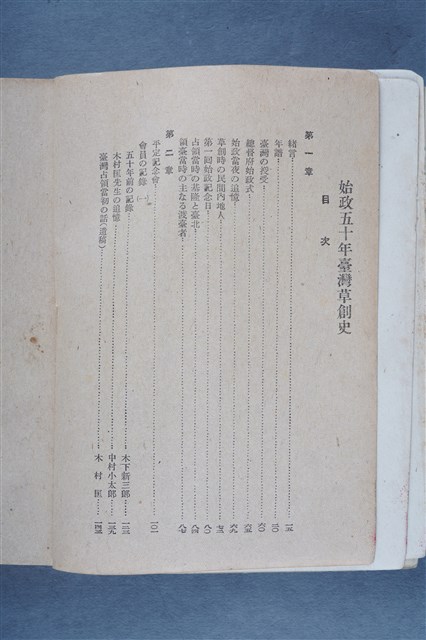 始政五十年臺灣草創史
目次
第一章
緒言
年譜
臺灣の授受
總督府始政式
始政當夜の追憶
草創時の民間內地人
第一回始政記念日
占領當時の基隆と臺北
領臺當時の主なる渡臺者
第二章
平定記念會 一〇一
會員の記錄(一)
五十年前の記錄 木下新三郎
木村匡先生の追憶 中村小太郎
臺灣占領當初の話(遺稿) 木村匡